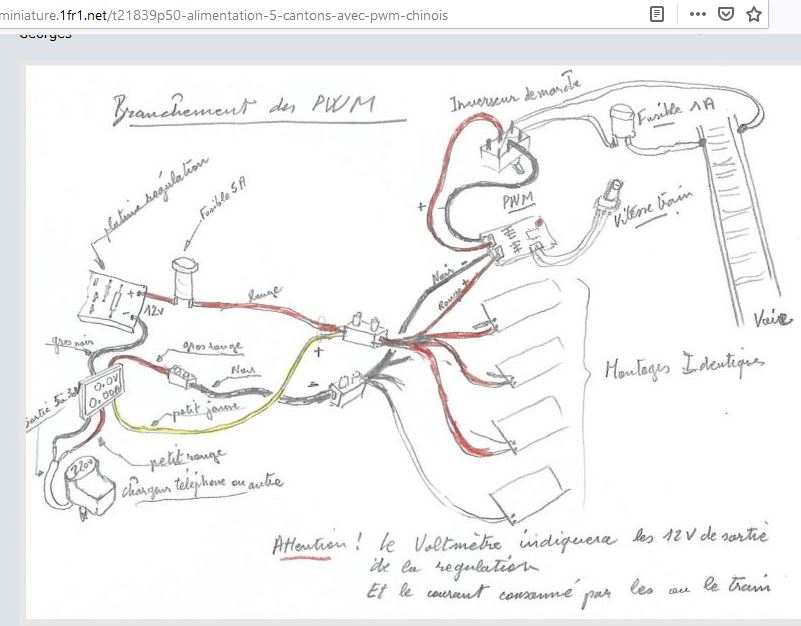 miniature.1fr1.net/t21839p50-alimentation-5-cantons-avec-pwm-chinois
Georges
Branchement des PWM
Inverseur de marche
Fusible 1A
platine régulation
Fusible 5A
PWM
Vitesse train
+
-
Noir
Rouge
+
12v
Rouge
Voie
gros noir
gros rouge
+
Noir
-
Montages Identiques
0.0V
0.00A
petit jaune
petit rouge
220v
chargeur téléphone ou autre
Attention! le Voltmètre indiquera les 12V de sortie
de la regulation
Et le courant consommé par les ou le train